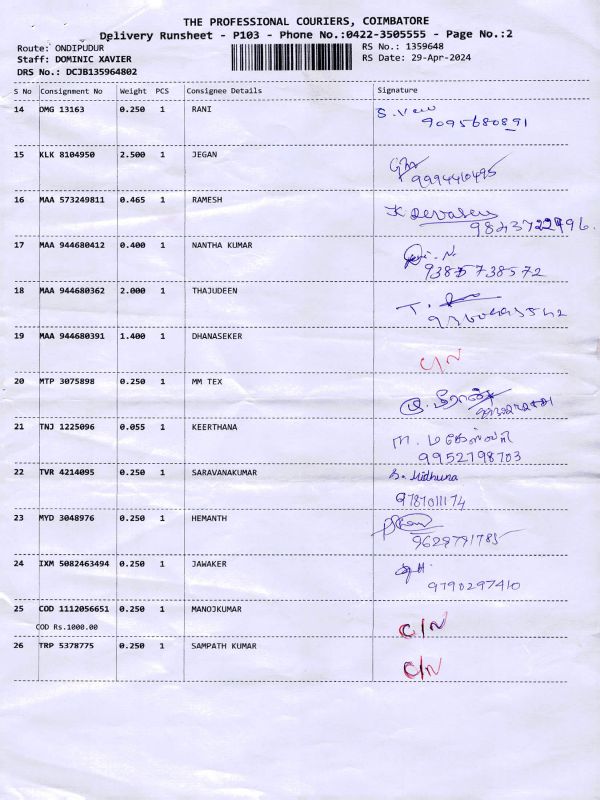 THE PROFESSIONAL COURIERS, COIMBATORE
Delivery Runsheet - P103 - Phone No.:0422-3505555 - Page No.:2
Route: ONDIPUDUR
RS No.: 1359648
Staff: DOMINIC XAVIER
RS Date: 29-Apr-2024
DRS No.: DCJB135964802
S No Consignment No Weight PCS Consignee Details Signature
14 DMG 13163 0.250 1 RANI
9095680891
15 KLK 8104950 2.500 1 JEGAN
9994410495
16 MAA 573249811 0.465 1 RAMESH
17 MAA 944680412 0.400 1 NANTHA KUMAR
9385738572
18 MAA 944680362 2.000 1 THAJUDEEN
19 MAA 944680391 1.400 1 DHANASEKER
C/N
20 MTP 3075898 0.250 1 MM TEX
21 TNJ 1225096 0.055 1 KEERTHANA
9952798703
22 TVR 4214095 0.250 1 SARAVANAKUMAR
S. Midhuna
9787011174
23 MYD 3048976 0.250 1 HEMANTH
9629791785
24 IXM 5082463494 0.250 1 JAWAKER
9790297410
25 COD 1112056651 0.250 1 MANOJKUMAR
COD Rs.1000.00
C/N
26 TRP 5378775 0.250 1 SAMPATH KUMAR
C/N